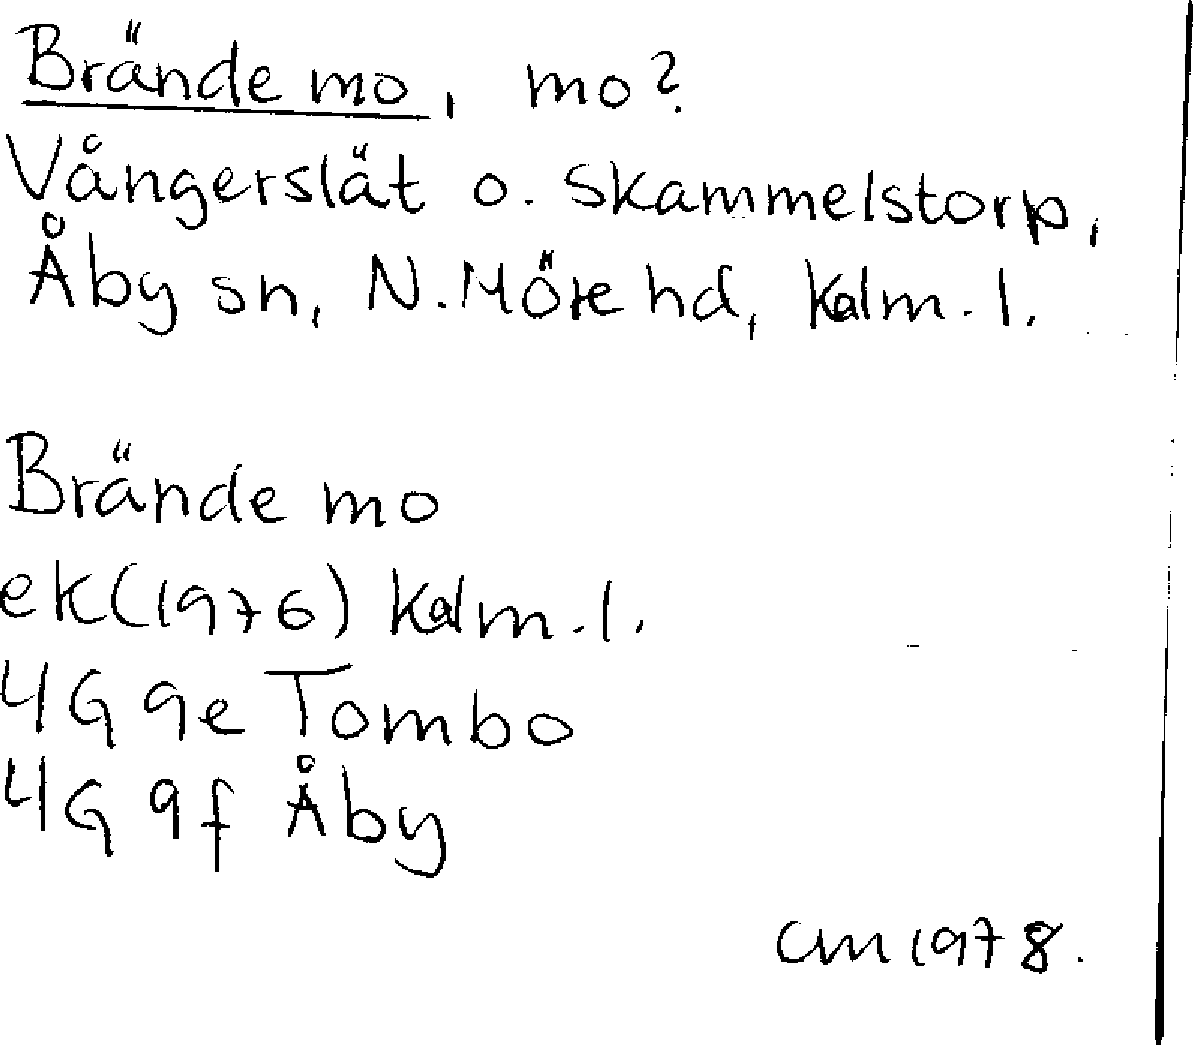 Brände mo, mo?
Vångerslät o. Skammelstorp,
Åby sn, N. Möre hd, Kalm. l.
Brände mo
ek (1976) Kalm. l.
4G 9e Tombo
4G 9f Åby
CM 1978.